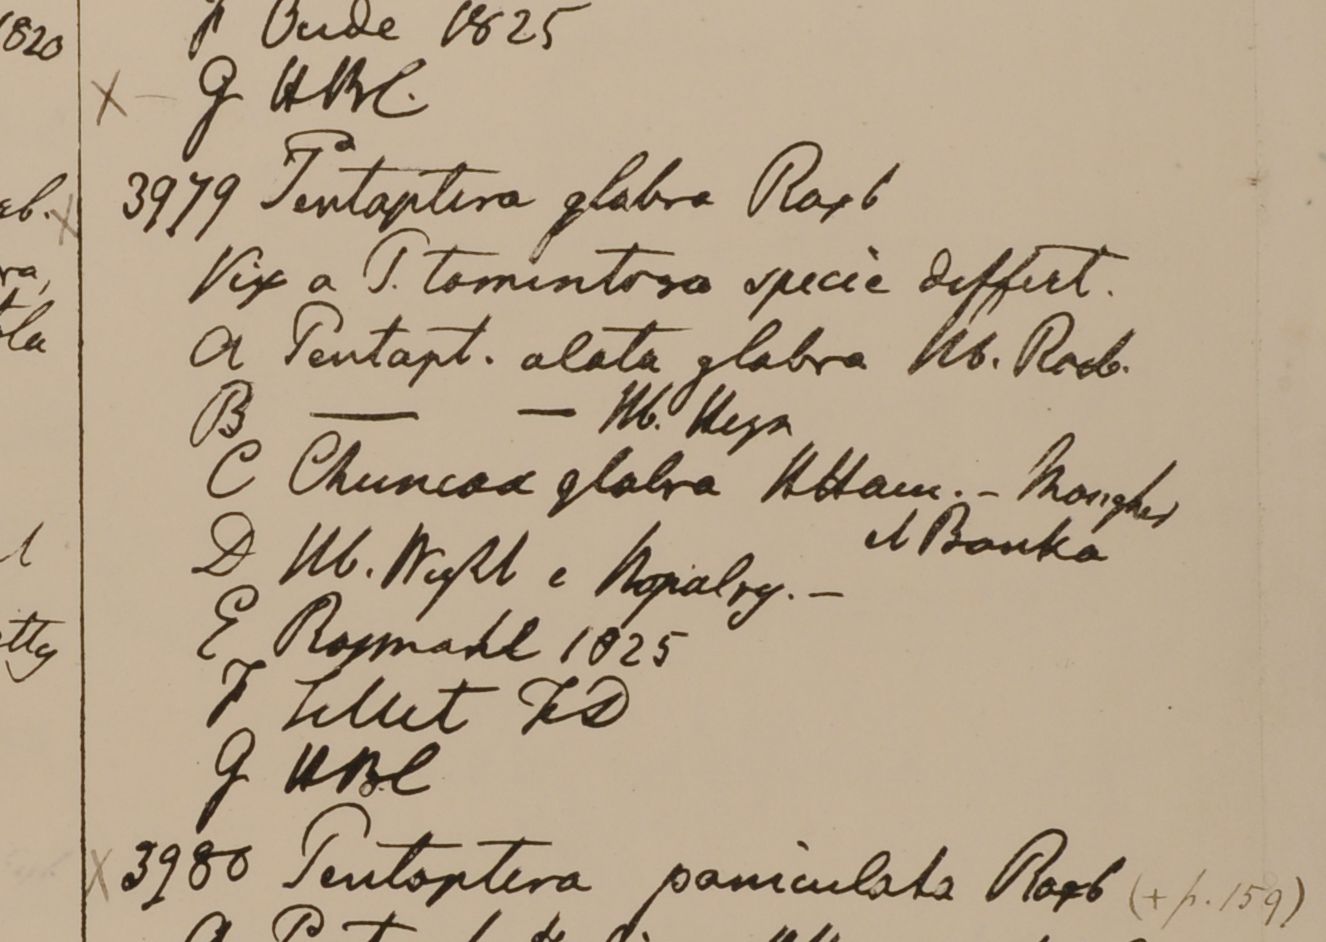 1820
F Oude 1825
X – G HBC.
3979 Pentaptera glabra Roxb
Vix a P. tomentosa specie differt.
A Pentapt. alata glabra Hb. Roxb.
B — — Hb. Heyn
C Chuncoa glabra HHam. – Monghir
et Banka
D Hb. Wight e Ropalry. –
E Rajmahl 1825
F Sillet FD
G HBC
X 3980 Pentaptera paniculata Roxb (+ p. 159)